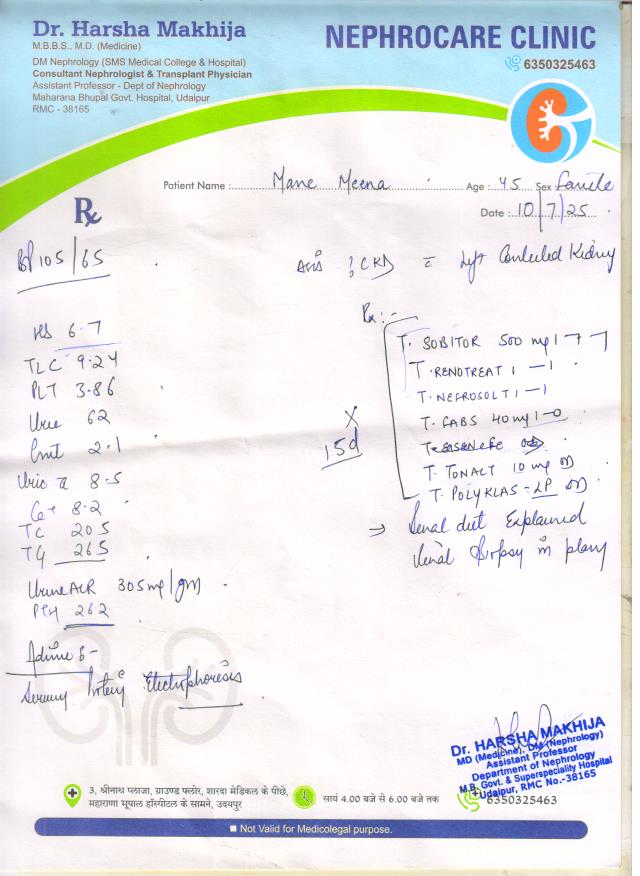 Dr. Harsha Makhija
M.B.B.S., M.D. (Medicine)
DM Nephrology (SMS Medical College & Hospital)
Consultant Nephrologist & Transplant Physician
Assistant Professor - Dept of Nephrology
Maharana Bhupal Govt. Hospital, Udaipur
RMC - 38165
NEPHROCARE CLINIC
6350325463
Patient Name : Mane Meena Age : 45 Sex Female
Date : 10/7/25
Rx
BP 105/65
CKD Left Contracted Kidney
Hb 6.7
TLC 9.24
PLT 3.86
Urea 62
Creat 2.1
Uric a 8.5
Ca+ 8.2
TC 205
TG 265
Urine ACR 305 mg/gm
PTH 262
Advise :-
Serum Protein Electrophoresis
Rx :-
T. SOBITOR 500 mg 1-1-1
T. RENOTREAT 1-1
T. NEFROSOLT 1-1
T. FABS 40 mg 1-0
T. TONACT 10 mg OD
T. POLYKLAS-LP OD
X
15d
→ Renal diet Explained
Renal Biopsy in plan
Dr. HARSHA MAKHIJA
MD (Medicine), DM (Nephrology)
Assistant Professor
Department of Nephrology
M.B. Govt. & Superspeciality Hospital
Udaipur, RMC No.-38165
3, श्रीनाथ प्लाजा, ग्राउण्ड फ्लोर, शारदा मेडिकल के पीछे,
महाराणा भूपाल हॉस्पीटल के सामने, उदयपुर
सायं 4.00 बजे से 6.00 बजे तक
6350325463
Not Valid for Medicolegal purpose.